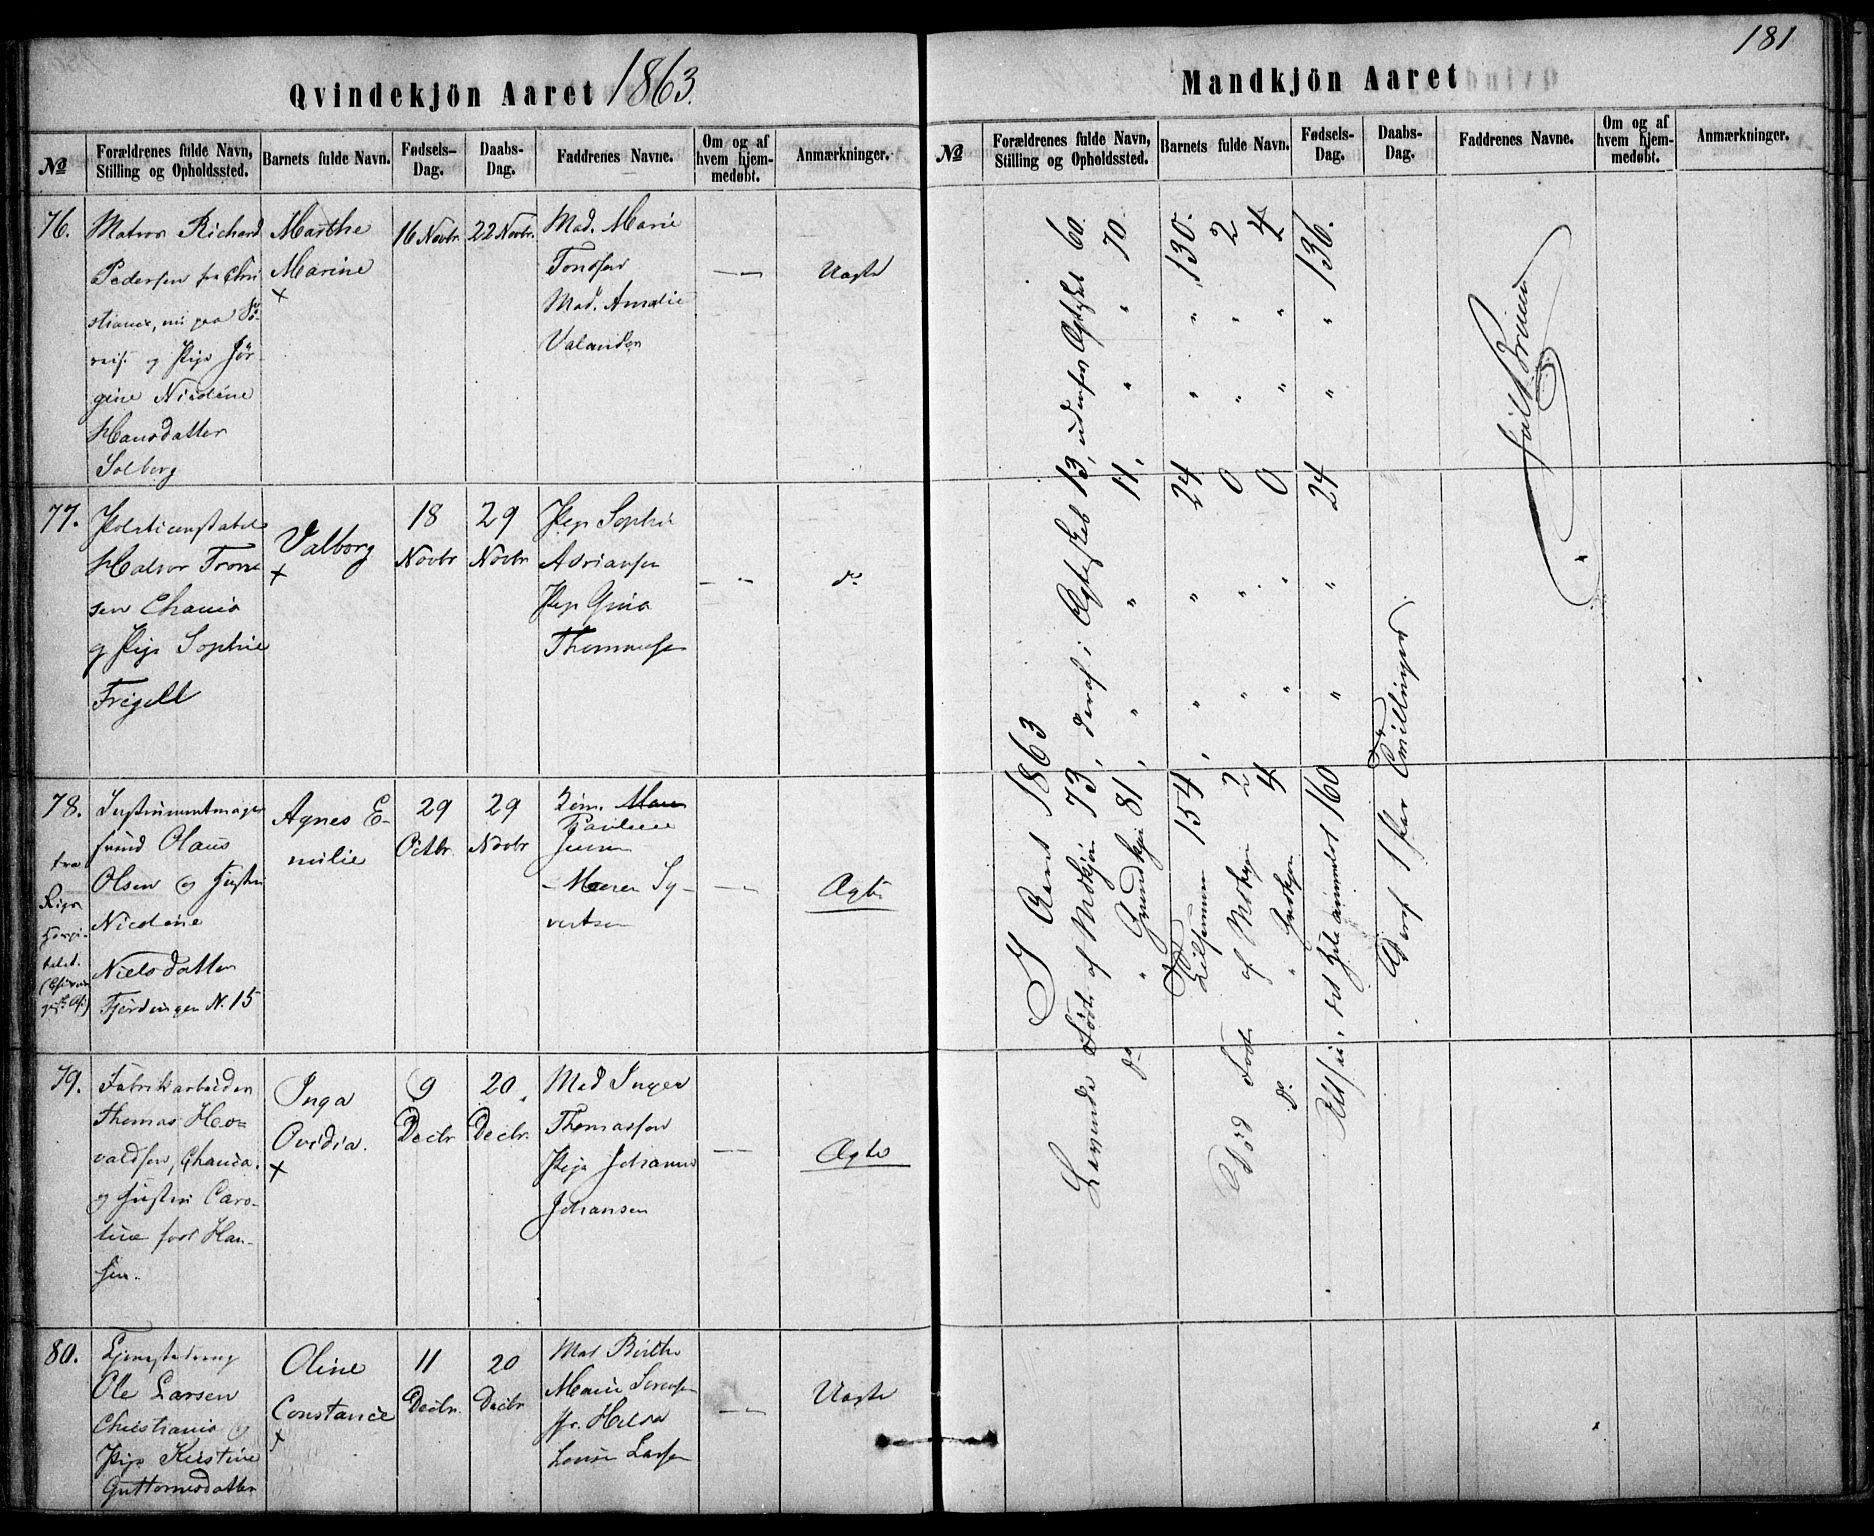 181
Qvindekjön Aaret 1863.
№
Forældrenes fulde Navn, Stilling og Opholdssted.
Barnets fulde Navn.
Fødsels-Dag.
Daabs-Dag.
Faddrenes Navne.
Om og af hvem hjemmedøbt.
Anmærkninger.
76.
Matros Richard
Pedersen fra Chri
stiania, nu paa
og Pige Jør
gine Nicoline
Hansdatter
Solberg
Marthe
Marine
×
16 Novbr.
22 Novbr.
Mad. Marie
Tonsen
Mad. Amalie
Valander
— —
Uægte
77.
Politiconstabel
Halvor Trone
sen Chania
og Pige Sophie
Frigell
Valborg
×
18
Novbr
29
Novbr
Pige Sophie
Adriansen
Pige Gina
Thommesen
— —
do
78.
fra
Rigs
Hospi-
talet.
Instrumentmager
svend Olaus
Olsen og Hustru
Nicoline
Nielsdatter
Fjerdingen N. 15
Agnes E-
milie
29
Octbr
29
Novbr
Pauline
Jensen
- Maren Sy-
vertsen
— —
Ægte
79.
Fabrikarbeider
Thomas Ho-
valdsen, Chania.
og Hustru Caro-
line født Han-
sen.
Inga
Ovidia.
×
9
Decbr
20
Decbr.
Mad Inger
Thomassen
Pige Johanne
Johansen
— —
Ægte
80.
Tjenestedreng
Ole Larsen
Christiania og
Pige Kirstine
Guttormsdatter
Oline
Constance
×
11
Decbr.
20
Decbr
Mad Birthe
Marie Sørensen
Hilda
Louise Larsen
— —
Uægte
Mandkjön Aaret
№
Forældrenes fulde Navn, Stilling og Opholdssted.
Barnets fulde Navn.
Fødsels-Dag.
Daabs-Dag.
Faddrenes Navne.
Om og af hvem hjemmedøbt.
Anmærkninger.
I Aaret 1863
Levende Født af Mdkjøn 73, deraf i Ægteskab 13, udenfor Ægtesk 60.
do " Qvindkjøn 81, " " 11, " " 70.
Tilsammen 154, " " 24 " " 130.
Død Født af Mdkjøn 2 " " 0 " " 2
do. " Qvdkjøn 4 " " 0 " " 4
Altsaa i det Hele anmeldt 160 " " 24 " " 136.
Deraf 1 Par Tvillinger